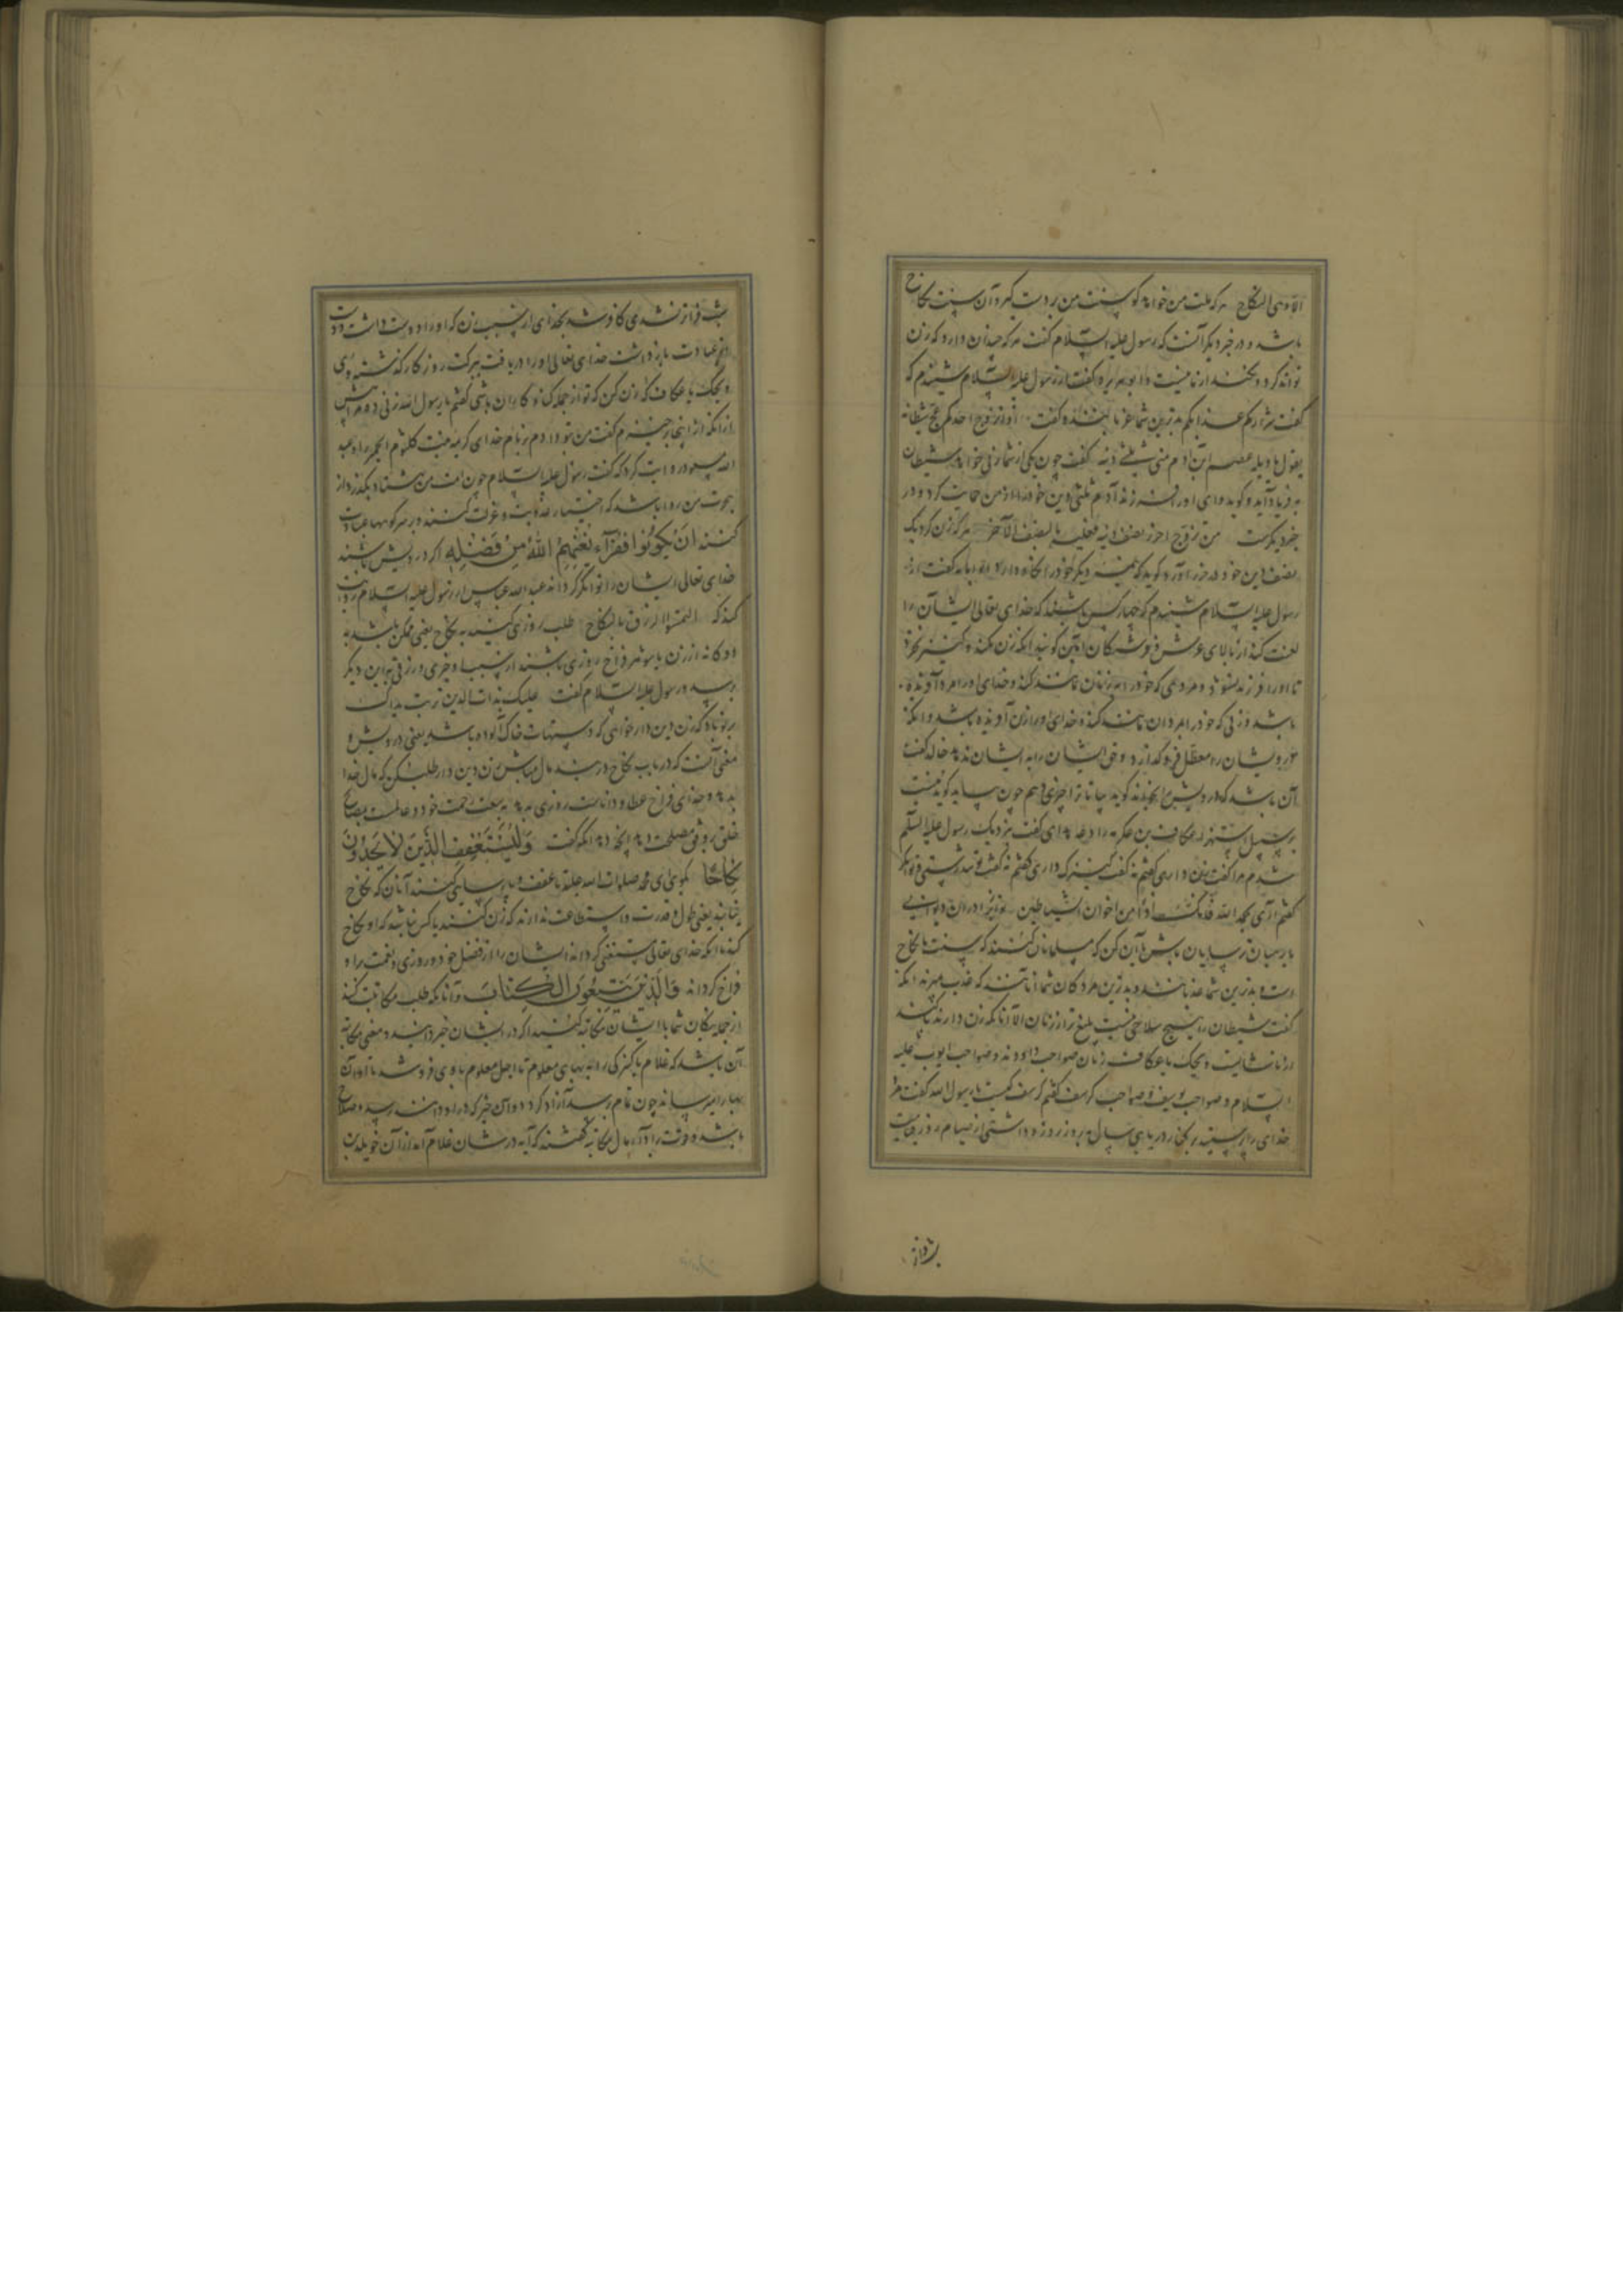 الا وهی النکاح هر که ملت من خواهد کو سنت من بدست گیر و آن سنت نکاح
باشد و در خبر دیگر آنست که رسول علیه السلام گفت هر که چندان دارد که زن
تواند کرد و نکند از ما نیست و ابوهریره گفت از رسول علیه السلام شنیدم که
گفت شرارکم عذابکم بدترین شما عزبانند و گفت اذا تزوج احدکم عج شیطانه
یقول یا ویله عصم ابن آدم منی ثلثی دینه گفت چون یکی از شما زنی خواهد شیطان
به فریاد آید و گوید وای او را فرزند آدم ثلثی دین خود را از من حمایت کرد و در
خبر دیگرست من تزوج احرز نصف دینه فعلیه بالنصف الآخر هر که زن کرد یک
نصف دین خود در حرز آورد گوید که نیمه دیگر خود را نگاه دارد ابوامامه گفت از
رسول علیه السلام شنیدم که چهار کس باشند که خدای تعالی ایشان را
لعنت کند از بالای عرش و فرشتگان آمین گویند آنکه زن نکند و کنیزک نخرد
تا او را فرزند نشود و مردمی که خود را به زنان مانند کند و خدای او را مرد آفریده
باشد و زنی که خود را به مردان مانند کند و خدای او را زن آفریده باشد و آنکه
درویشان را معطل فرو گذارد و حق ایشان را به ایشان ندهد خاله گفت
آن باشد که درویش را بخواند گوید بیا تا ترا چیزی دهم چون بیاید گوید نیست
بر سبیل استهزاء عکاف بن وداعه گفت نزدیک رسول علیه السلام
شدم مرا گفت زن داری گفتم نه گفت کنیزک داری گفتم نه گفت تندرستی و توانگر
گفتم آری بحمد الله گفت فانت اذا من اخوان الشیاطین تو از برادران دیوانی
یا رهبان ترسایان باش یا آن کن که مسلمانان کنند که سنت ما نکاح
است و بدترین شما عزبانند و بدترین مردگان شما آنانند که عزب میرند آنکه
گفت شیطان را هیچ سلاحی نیست بلیغ‌تر از زنان الا آنانکه زن دارند
ویحک یا عکاف زنان صواحب داوودند و صواحب ایوب علیه
السلام و صواحب یوسف و صواحب کرسف گفتم کرسف کیست یا رسول الله گفت مردی
خدای را پرستید بر کنار دریایی سیصد سال به روز روزه داشتی از صیام روز و قیام
شب فراتر نشدی کافر شد بخدای از سبب زن که او را دوست داشت و دست
از عبادت باز داشت خدای تعالی او را دریافت ببرکت روزگار گذشته وی
ویحک یا عکاف زن کن که تو از جمله گناهکاران باشی گفتم یا رسول الله زنی ده مرا پیش
از آنکه از اینجا برخیزم گفت من بتو دادم بر نام خدای کریمه بنت کلثوم الحمیری را و عبد
الله مسعود روایت کرد که گفت رسول علیه السلام چون امت من هشتاد بگذرد از
هجرت من روا باشد که اختیار عزبت و عزلت کنند و بر سر کوهها عبادت
کنند ان یکونوا فقراء یغنهم الله من فضله اگر درویش باشند
خدای تعالی ایشان را توانگر گرداند عبدالله عباس از رسول علیه السلام روایت
کند که التمسوا الرزق بالنکاح طلب روزی کنید به نکاح یعنی ممکن باشد به
دوگانه از زن یا شوهر فراخ روزی باشند از سبب او خبری درین دیگر
پرسید رسول علیه السلام گفت علیک بذات الدین تربت یداک
بر تو باد که زن دین‌دار خواهی که دستهات خاک آلوده باشد یعنی درویش و
معنی آنست که در باب نکاح در بند مال مباش زن دین‌دار طلب کن که مال خدا
بدهد و خدای فراخ عطا و داناست روزی دهد به سعت رحمت خود و عالمست بمصالح
خلق بر وفق مصلحت دهد آنچه دهد آنکه گفت ولیستعفف الذین لا یجدون
نکاحا بگوی ای محمد صلوات الله علیه تا عفت و پارسایی کنند آنان که نکاح
نیابند یعنی طول و قدرت و استطاعت ندارند که زن کنند یا کس نباشد که او نکاح
کند تا آنکه خدای تعالی مستغنی گرداند ایشان را از فضل خود و روزی و نعمت را
فراخ گرداند والذین یبتغون الکتاب و آنانکه طلب مکاتبت کنند
از جمله بندگان شما با ایشان مکاتبه کنید اگر در ایشان خیر دانید و معنی مکاتبه
آن باشد که غلام یا کنیزکی را به بهای معلوم تا اجل معلوم باوی فروشد تا او آن
بها را میرساند چون تمام برسد آزاد گردد و آن خیر که در او دانند رسد و صلاح
باشد و قوت بر ادای مال مکاتبه گفتند که آیه در شان غلامی آمد از آن حویطب بن
شب فراتر